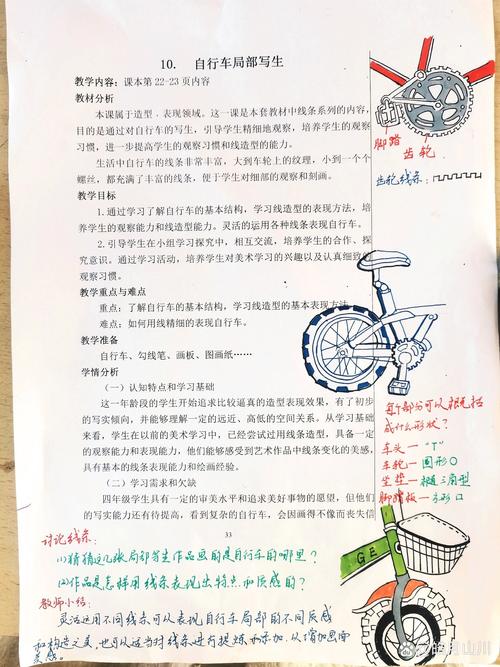 10. 自行车局部写生
教学内容：课本第22-23页内容
教材分析
本课属于造型·表现领域。这一课是本套教材中线条系列的内容，
目的是通过对自行车的写生，引导学生精细地观察，培养学生的观察
习惯，进一步提高学生的观察习惯和线造型的能力。
生活中自行车的线条非常丰富，大到车轮上的纹理，小到一个个
螺丝，都充满了丰富的线条，便于学生对细部的观察和刻画。
教学目标
1.通过学习了解自行车的基本结构，学习线造型的表现方法，培
养学生的观察能力和线造型能力。灵活的运用各种线条表现自行车。
2.引导学生在小组学习探究中，相互交流，培养学生的合作、探
究意识。通过学习活动，培养学生对美术学习的兴趣以及认真细致的
观察习惯。
教学重点与难点
重点：了解自行车的基本结构，学习线造型的基本表现方法
难点：如何用线精细的表现自行车。
教学准备
自行车、勾线笔、画板、图画纸……
学情分析
（一）认知特点和学习基础
这一年龄段的学生开始追求比较逼真的造型表现效果，有了初步
的写实倾向，并能够理解一定的远近、高低的空间关系。从学习基础
来看，学生在以前的美术学习中，已经尝试过用线条造型，具备一定
的观察能力和表现能力，他们能够感受到艺术作品中线条变化的美感，
具有基本的线条表现能力和绘画经验。
（二）学习需求和欠缺
四年级学生具有一定的审美水平和追求美好事物的愿望，但他们
的写实能力还有待提高，看到复杂的自行车，会因画得不像而丧失信
33
脚踏
齿轮
齿轮线条：
每个部分可以概括
成什么形状？
车头—"T"
车轮—圆形
坐垫—椭三角型
脚踏板—方形
GE
讨论线条：
(1)猜猜这几张局部写生作品画的是自行车的哪里？
(2)作品是怎样用线条表现出特点和质感的？
教师小结：
灵活运用不同线条可以表现自行车局部的不同质感
和构造之美，也可以适当对线条进行提炼和添加，从增加画面
美感。